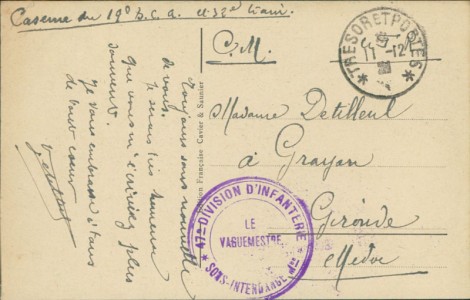 Caserne du 19e B.C.A. et 32e train.
C.M.
TRESOR ET POSTES
11-12
Toujours sans nouvelle
de vous.
Je serais très heureux
que vous m'écriviez plus
souvent.
Je vous embrasse à tous
de tout coeur
Madame Detilleul
à Grayan
Gironde
Médoc
47e DIVISION D'INFANTERIE
LE
VAGUEMESTRE
SOUS-INTENDANCE Mre
Française Cavier & Saunier